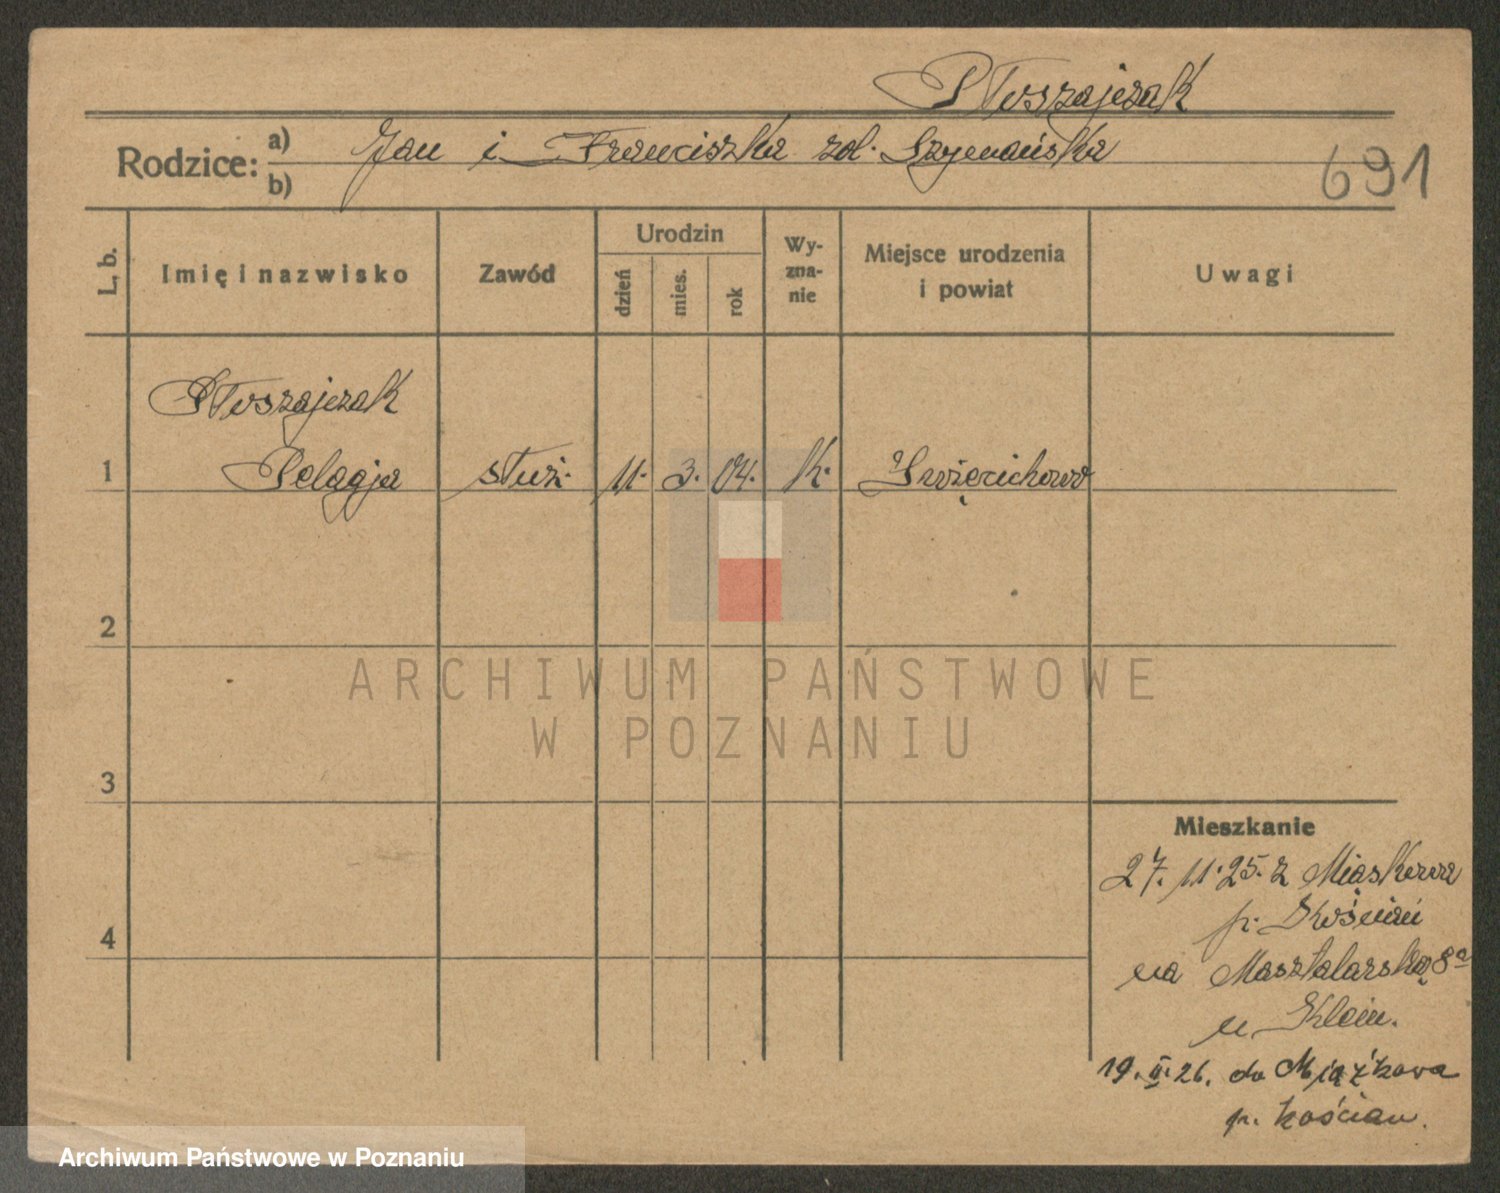 Ptoszajczak
Rodzice: a) Jan i Franciszka zd. Szymańska
b)
691
L. b.
Imię i nazwisko
Zawód
Urodzin
dzień
mies.
rok
Wy-
zna-
nie
Miejsce urodzenia
i powiat
Uwagi
Ptoszajczak
1 Pelagja służ. 11. 3. 04. k. Święciechowo
2
3
4
Mieszkanie
27. 11. 25. z Miąskowa
p. Kościan
na Masztalarską 8a
u Klein.
19. II. 26. do Miąskowa
p. Kościan.
ARCHIWUM PAŃSTWOWE
W POZNANIU
Archiwum Państwowe w Poznaniu